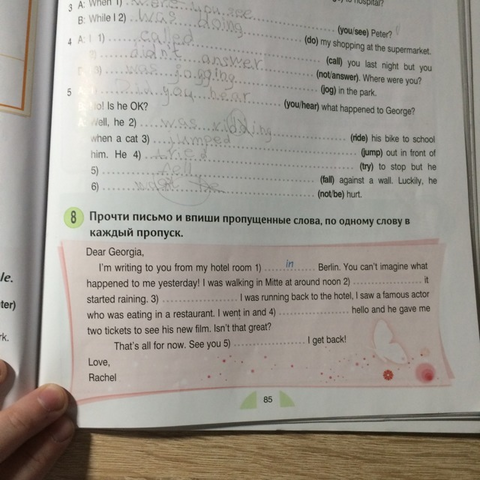 3 A: When 1) were you see (you/see) Peter?
B: While I 2) was doing (do) my shopping at the supermarket.
4 A: I 1) called (call) you last night but you
didn't answer (not/answer). Where were you?
was jogging (jog) in the park.
5 Did you hear (you/hear) what happened to George?
! Is he OK?
Well, he 2) was ridding (ride) his bike to school
when a cat 3) jumped (jump) out in front of
him. He 4) tried (try) to stop but he
5) fell (fall) against a wall. Luckily, he
6) (not/be) hurt.
8 Прочти письмо и впиши пропущенные слова, по одному слову в
каждый пропуск.
Dear Georgia,
I'm writing to you from my hotel room 1) in Berlin. You can't imagine what
happened to me yesterday! I was walking in Mitte at around noon 2) it
started raining. 3) I was running back to the hotel, I saw a famous actor
who was eating in a restaurant. I went in and 4) hello and he gave me
two tickets to see his new film. Isn't that great?
That's all for now. See you 5) I get back!
Love,
Rachel
85